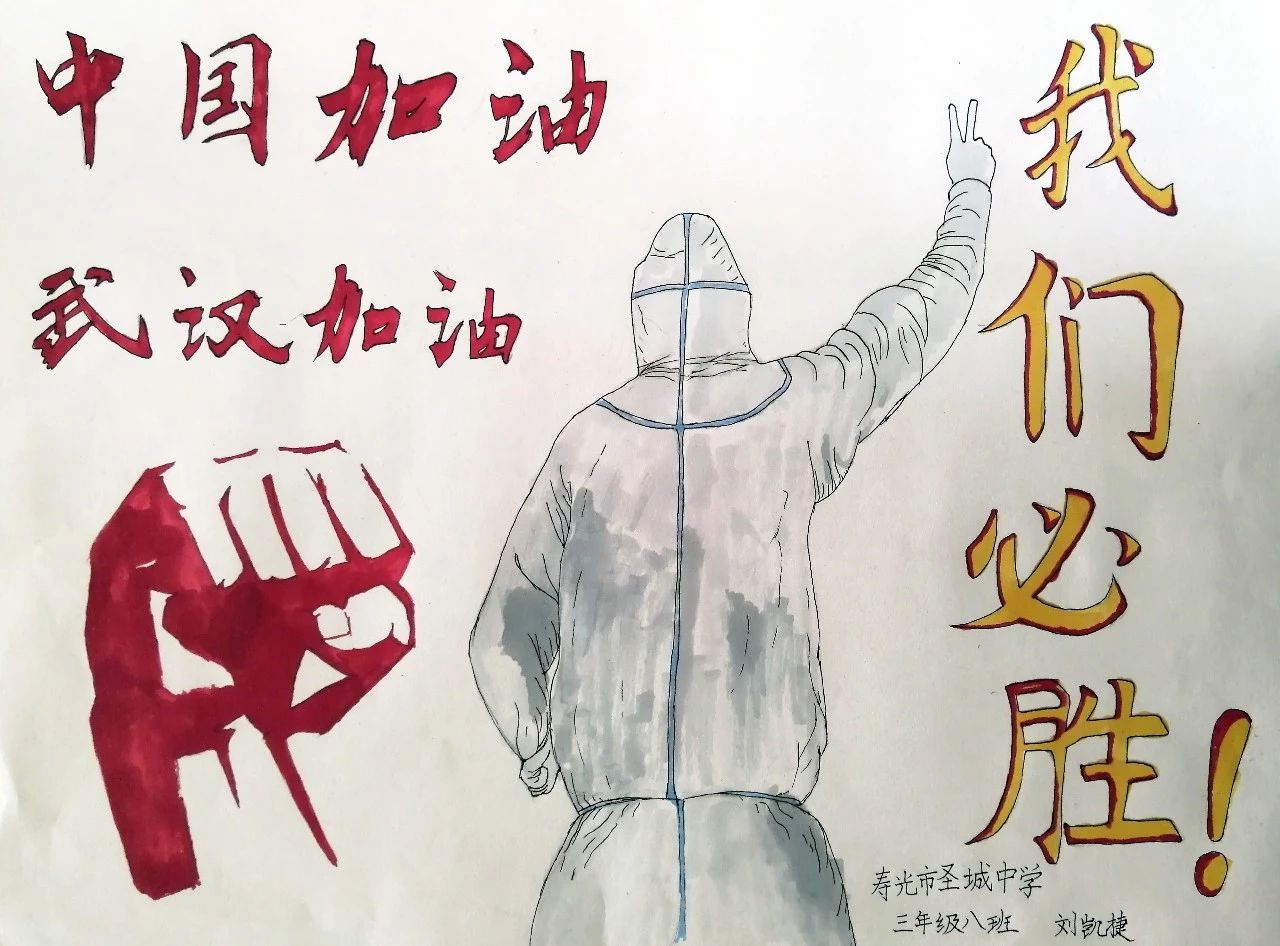 中国加油
武汉加油
我们必胜！
寿光市圣城中学
三年级八班 刘凯捷